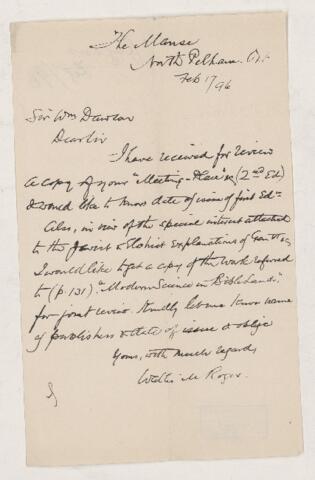 The Manse
North Pelham. Ont
Feb 17/96
Sir Wm Dawson
Dear Sir
I have received for review
a copy of your "Meeting-Place" &c (2nd Ed)
& would like to know date of issue of first Edn
Also, in view of the special interest attached
to the Javist & Elohist Explanations of Gen
I would like to get a copy of the work referred
to (p. 131) "Modern Science in Bible Lands."
for joint review. Kindly let me know name
of publishers & date of issue & oblige
Yours, with much regard,
M. Roger